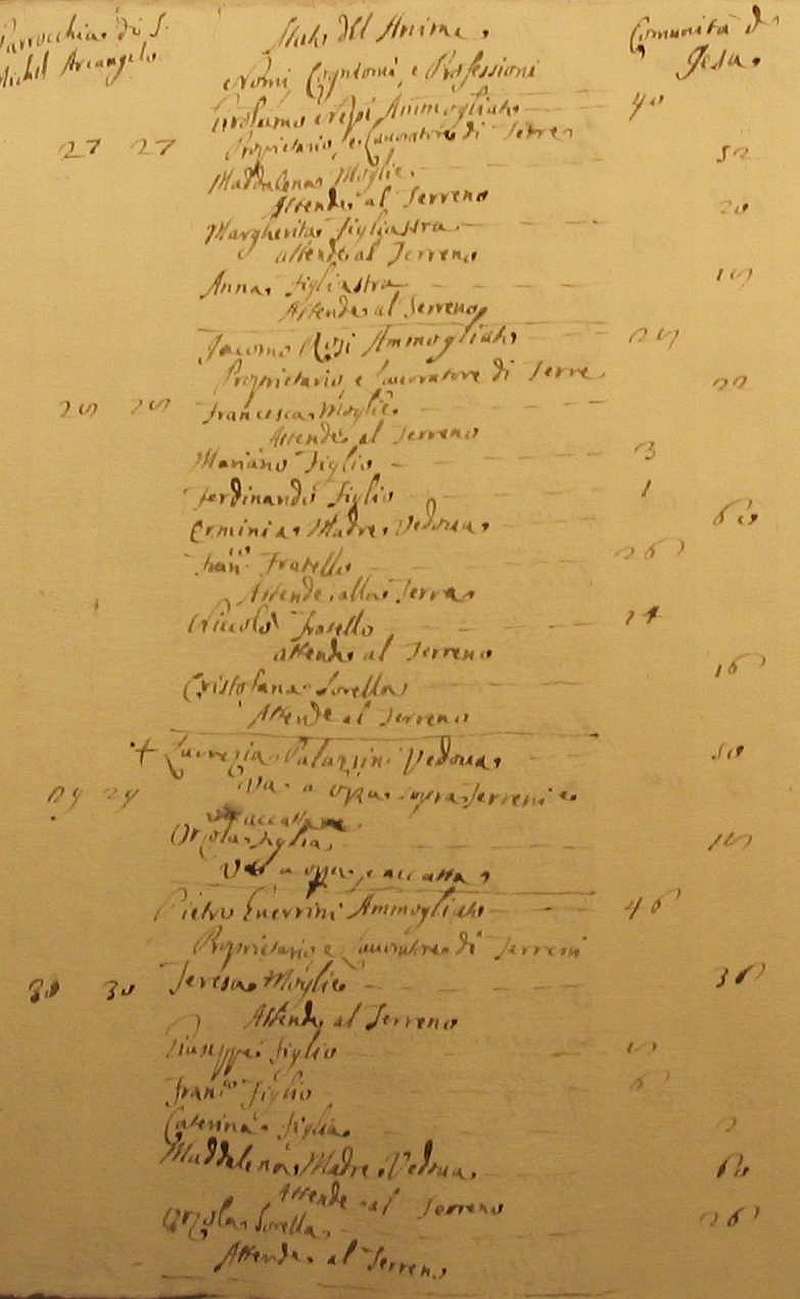 Parrocchia di S.
Michel Arcangelo
Stato dell Anime
Comunità di
Gesa.
Nomi, Cogniomi, e Professioni
Girolamo Ammogliato 40
27 27 Proprietario, e Lavoratore di Terre
Maddalena Moglie 52
Attende al Terreno
Margherita Figliastra 20
Attende al Terreno
Anna Figliastra 15
Attende al Terreno
Jacomo Rosi Ammogliato 25
Proprietario, e Lavoratore di Terre
Francesca Moglie 22
25 25
Attende al Terreno
Mariano Figlio 3
Ferdinando Figlio 1
Erminia Madre Vedova 60
Fran.co Fratello 26
Attende alla Terra
Niccolò Fratello 24
Attende al Terreno
Cristofana Sorella 16
Attende al Terreno
+ Lucrezia Palazzini Vedova 50
Va a opra sopra Terreni e
29 29
accattare
Orzola Figlia 15
Va a opra, e accatta
Pietro Guerrini Ammogliato 46
Proprietario e Lavoratore di Terreni
Teresa Moglie 36
30 30
Attende al Terreno
Giuseppe Figlio 5
Fran.co Figlio 6
Caterina Figlia 2
Maddalena Madre Vedova 60
Attende al Terreno
Orzola Sorella 26
Attende al Terreno